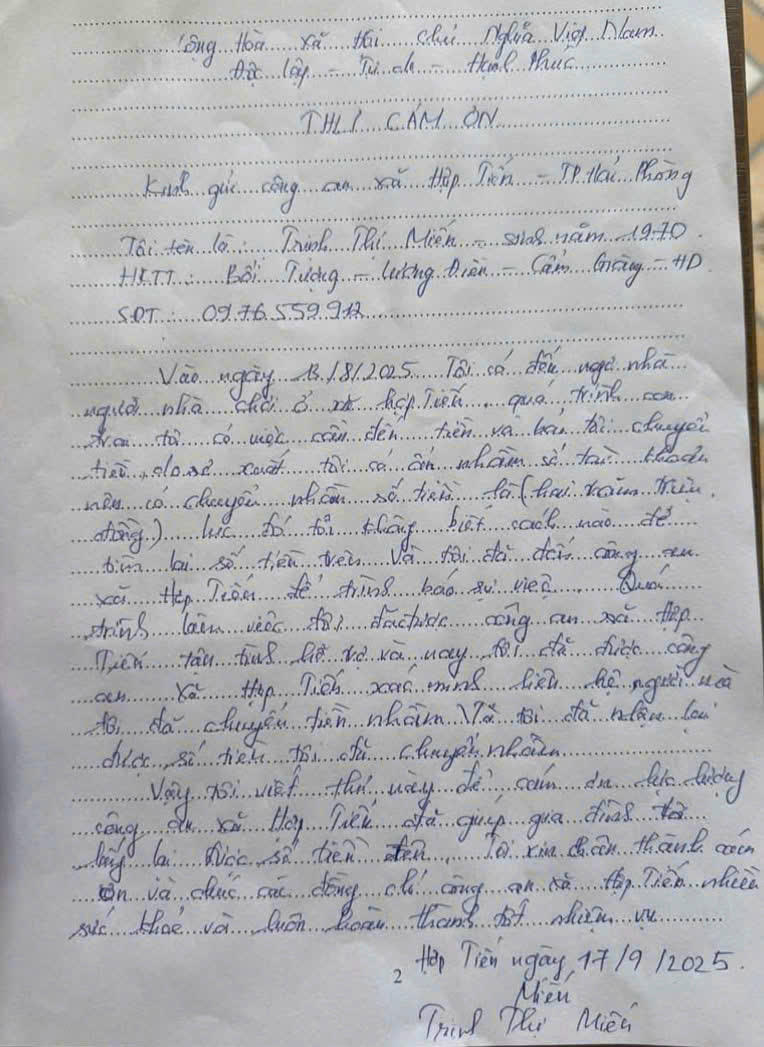 Cộng Hòa xã hội chủ Nghĩa Việt Nam
Độc lập - Tự do - Hạnh Phúc
THƯ CẢM ƠN
Kính gửi công an xã Hợp Tiến - TP Hải Phòng
Tôi tên là: Trịnh Thị Miến - sinh năm 1970.
HKTT: Bối Tượng - Lương Điền - Cẩm Giàng - HD
SĐT: 0976559912
Vào ngày 13/8/2025 Tôi có đến ngd nhà
người nhà chơi ở xã hợp Tiến quá trình con
trai tôi có việc cần đến tiền và bảo tôi chuyển
tiền, do sơ xuất tôi có ấn nhầm số tài khoản
nên có chuyển nhầm số tiền là (hai trăm triệu
đồng) lúc đó tôi không biết cách nào để
tìm lại số tiền trên. Và tôi đã đến công an
xã Hợp Tiến để trình báo sự việc. Quá
trình làm việc tôi đã được công an xã Hợp
Tiến tận tình hỗ trợ và nay tôi đã được công
an xã Hợp Tiến xác minh liên hệ người mà
tôi đã chuyển tiền nhầm. Và tôi đã nhận lại
được số tiền tôi đã chuyển nhầm
Vậy tôi viết thư này để cảm ơn lực lượng
công an xã Hợp Tiến đã giúp gia đình tôi
lấy lại được số tiền trên. Tôi xin chân thành cảm
ơn và chúc các đồng chí công an xã Hợp Tiến nhiều
sức khoẻ và luôn hoàn thành tốt nhiệm vụ
Hợp Tiến ngày 17/9/2025.
2
Miến
Trịnh Thị Miến